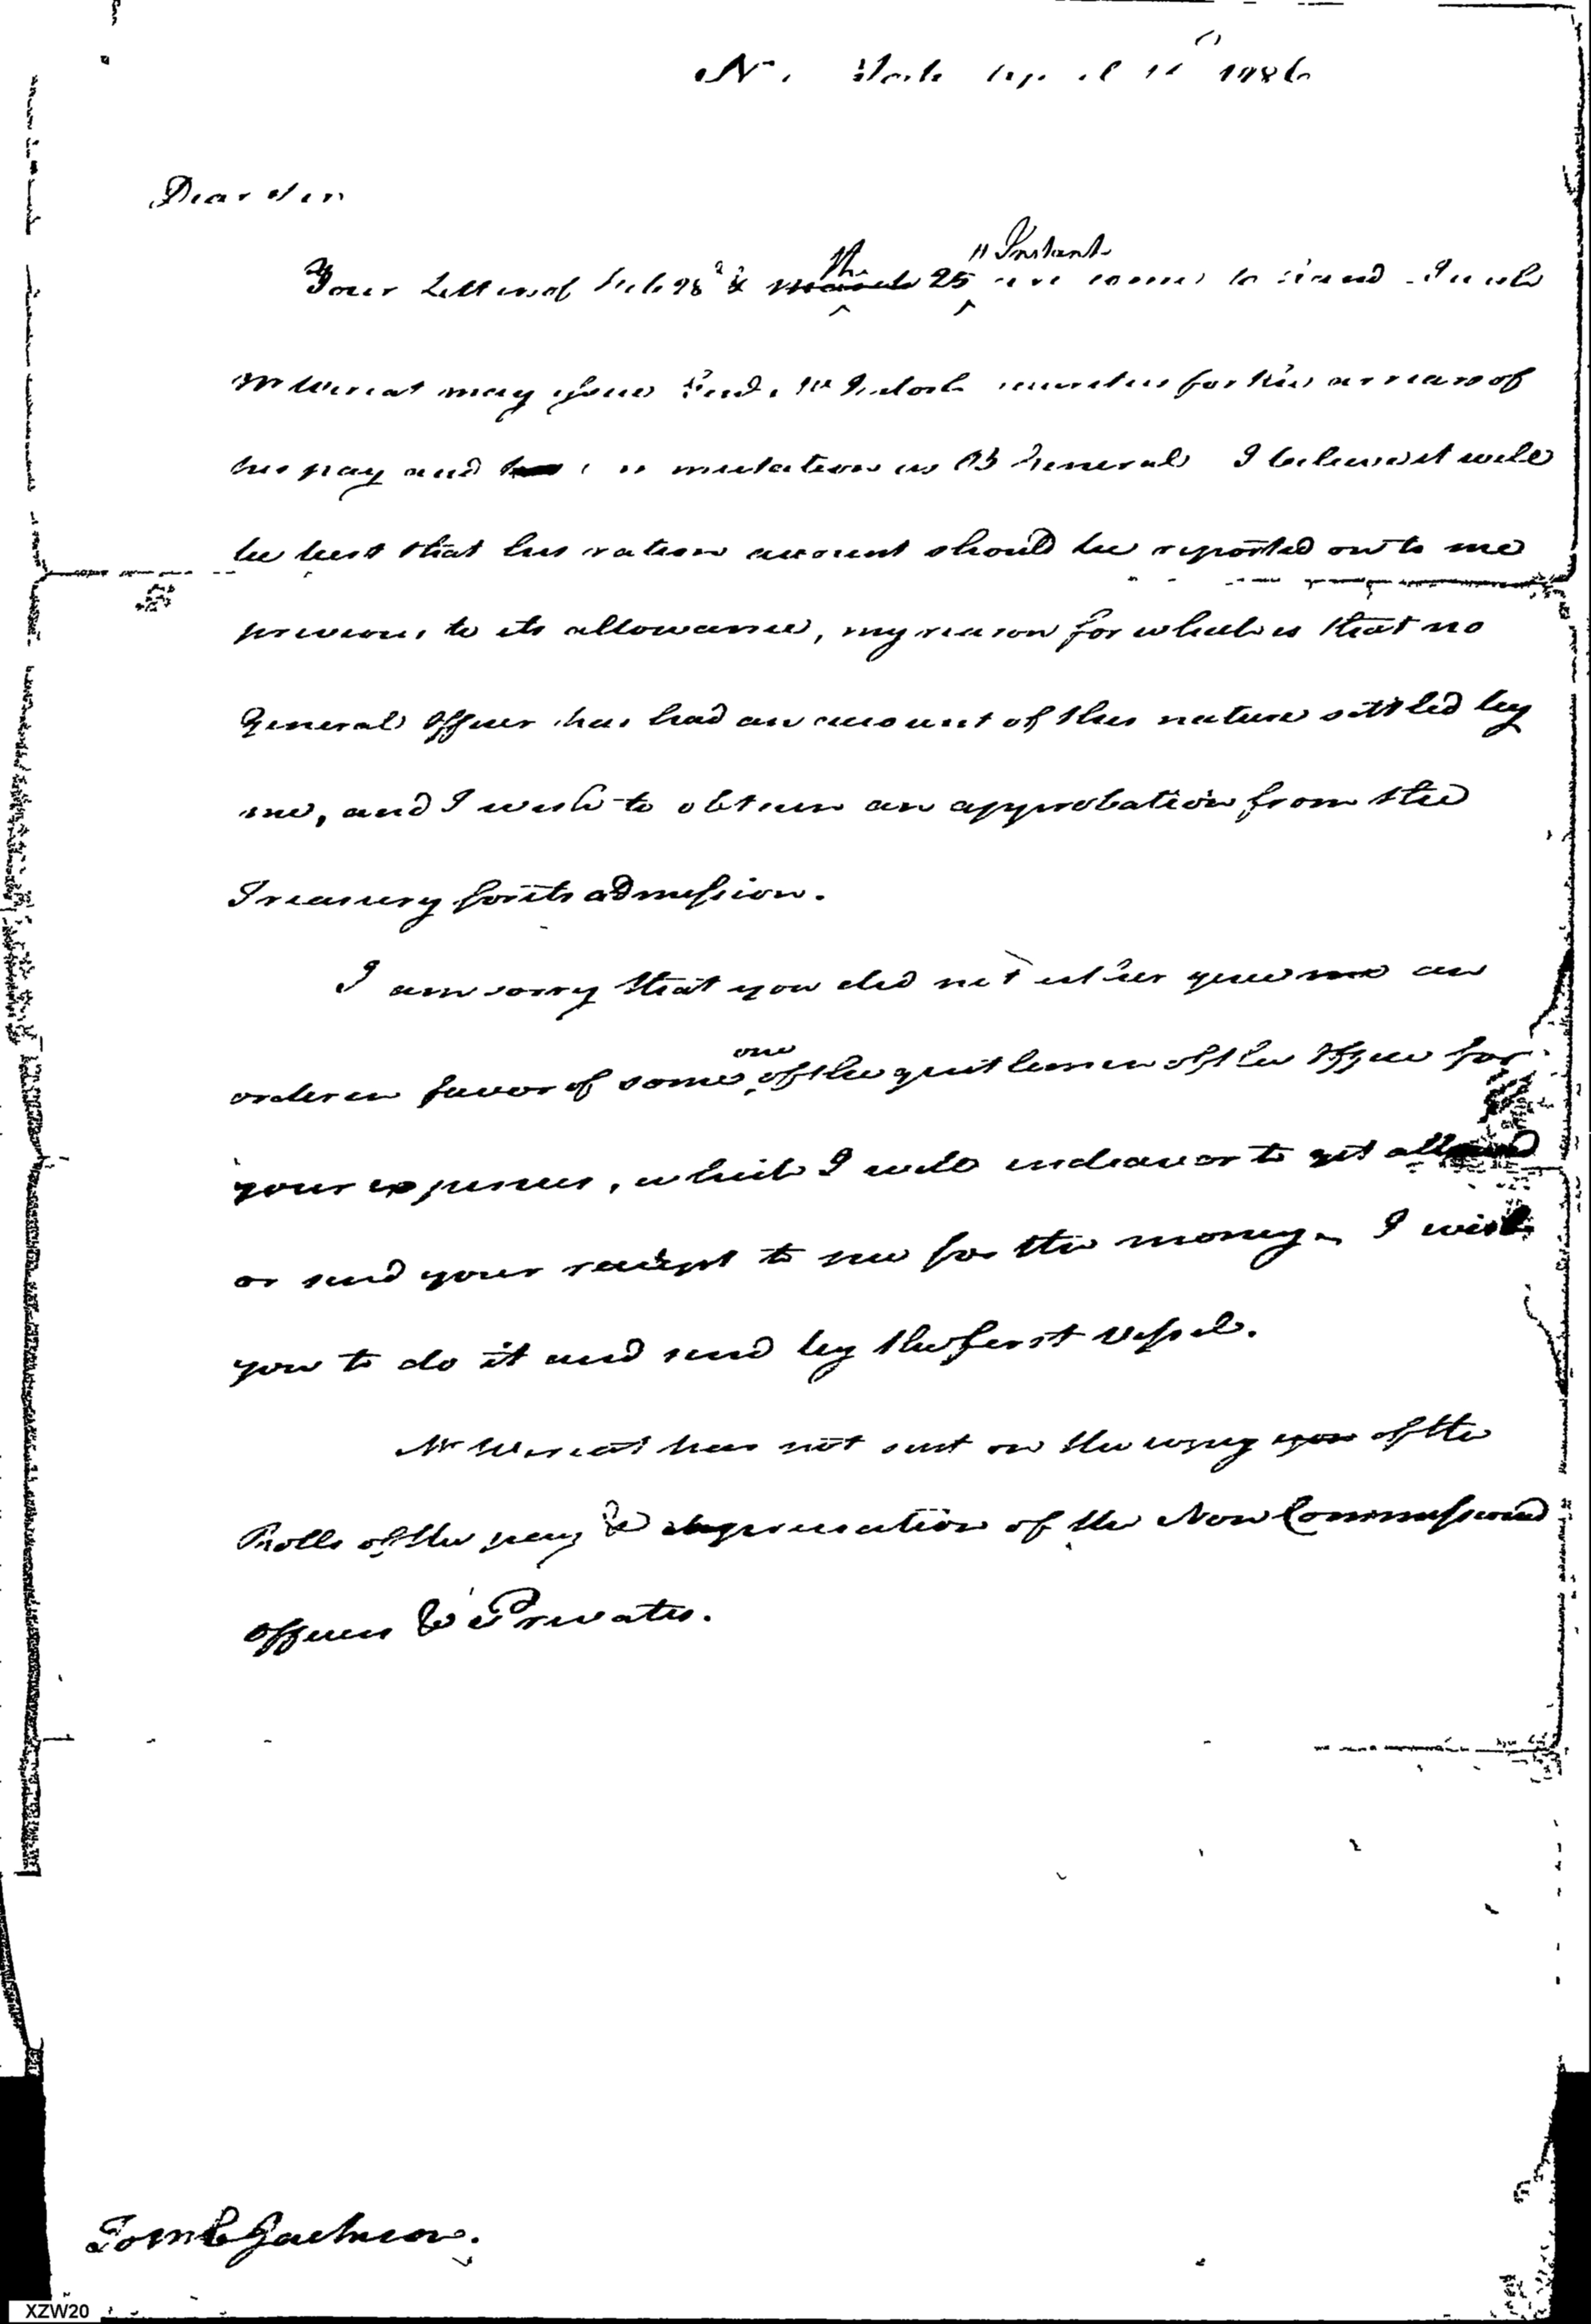 N. York April 1786
Dear Sir
Your Letters of Feb 28 & March the 25 Instant are come to hand I wish
Mr Wereat may issue Genl. McIntosh for his arrears of
his pay and commutation as B General I believe it will
be best that his ration account should be reported on to me
previous to its allowance, my reason for which is that no
General Officer has had an account of this nature settled by
me, and I wish to obtain an approbation from the
Treasury for its admission.
I am sorry that you did not either give me an
order in favor of some one of the gentlemen of the Office for
your expenses, which I will endeavor to get allowed
or send your receipt to me for the money. I wish
you to do it and send by the first Vessel.
Mr Wereat has not sent on the copy of the
Rolls of the pay & depreciation of the Non Commissioned
Officers & Privates.
Jackson.
XZW20